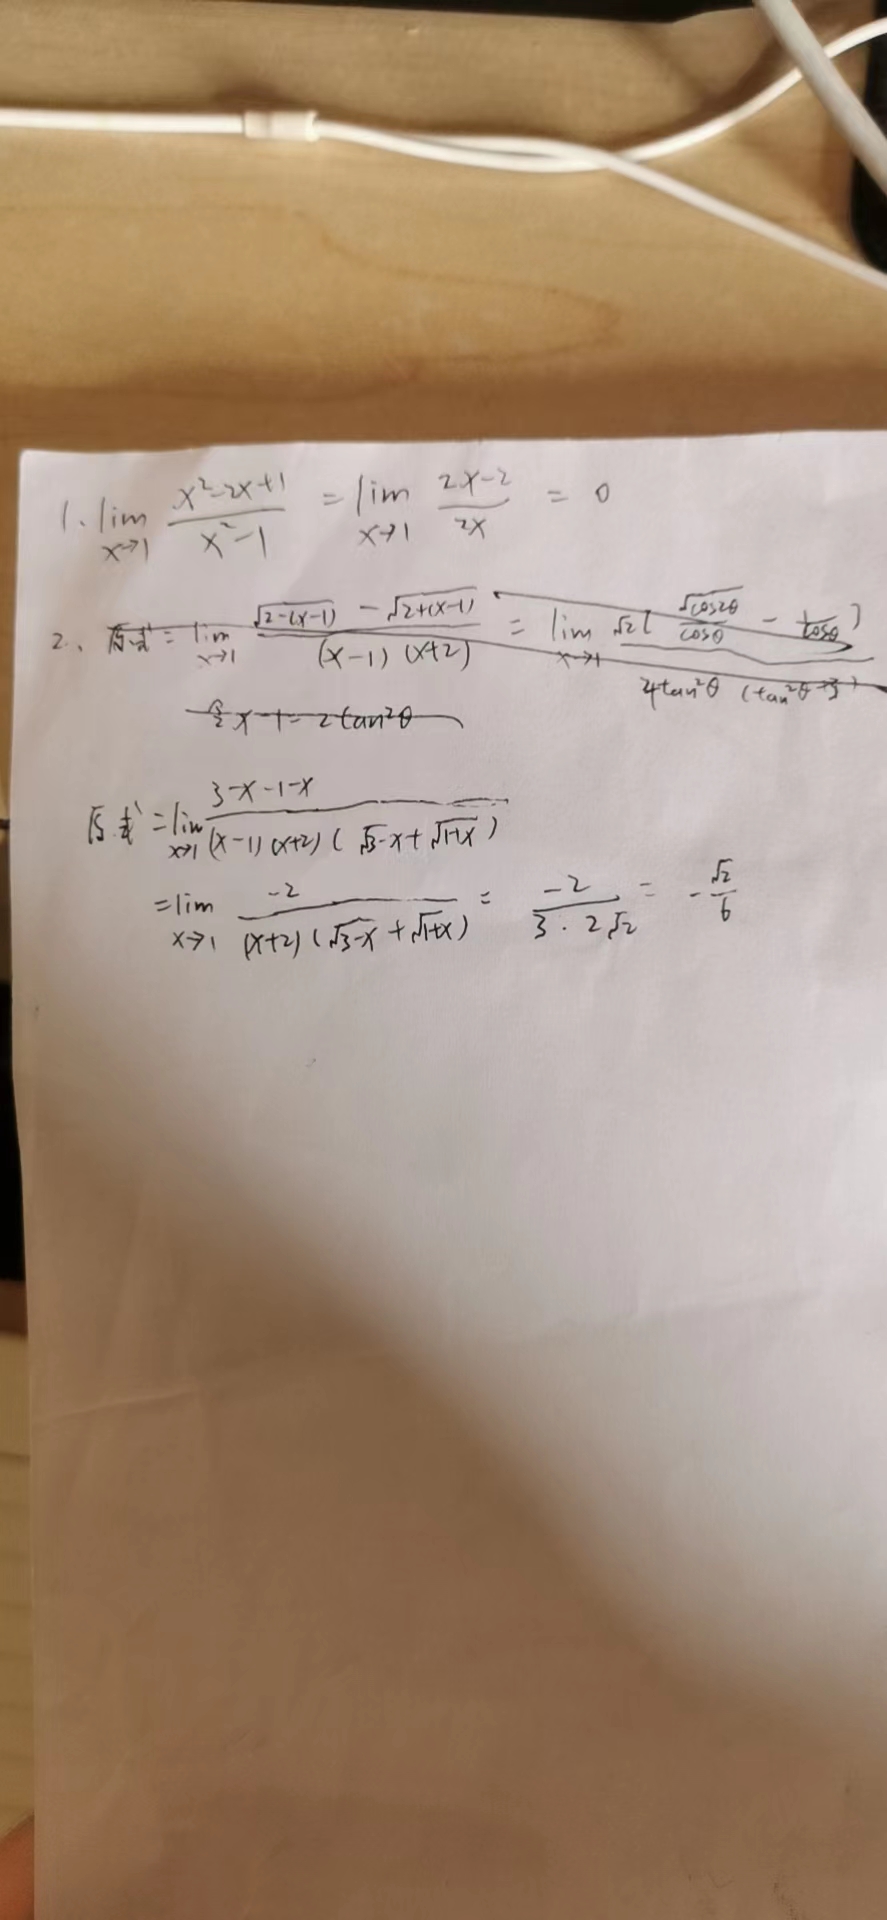 1. lim x→1 (x²-2x+1)/(x²-1) = lim x→1 (2x-2)/(2x) = 0
2. 原式 = lim x→1 (√(2-(x-1)) - √(2+(x-1)))/((x-1)(x+2)) = lim x→1 √2(√cos2θ/cosθ - 1/cosθ)/(4tan²θ(tan²θ+3))
x-1=2tan²θ
原式 = lim x→1 (3-x-1-x)/((x-1)(x+2)(√(3-x)+√(1+x)))
= lim x→1 -2/((x+2)(√(3-x)+√(1+x))) = -2/(3·2√2) = -√2/6